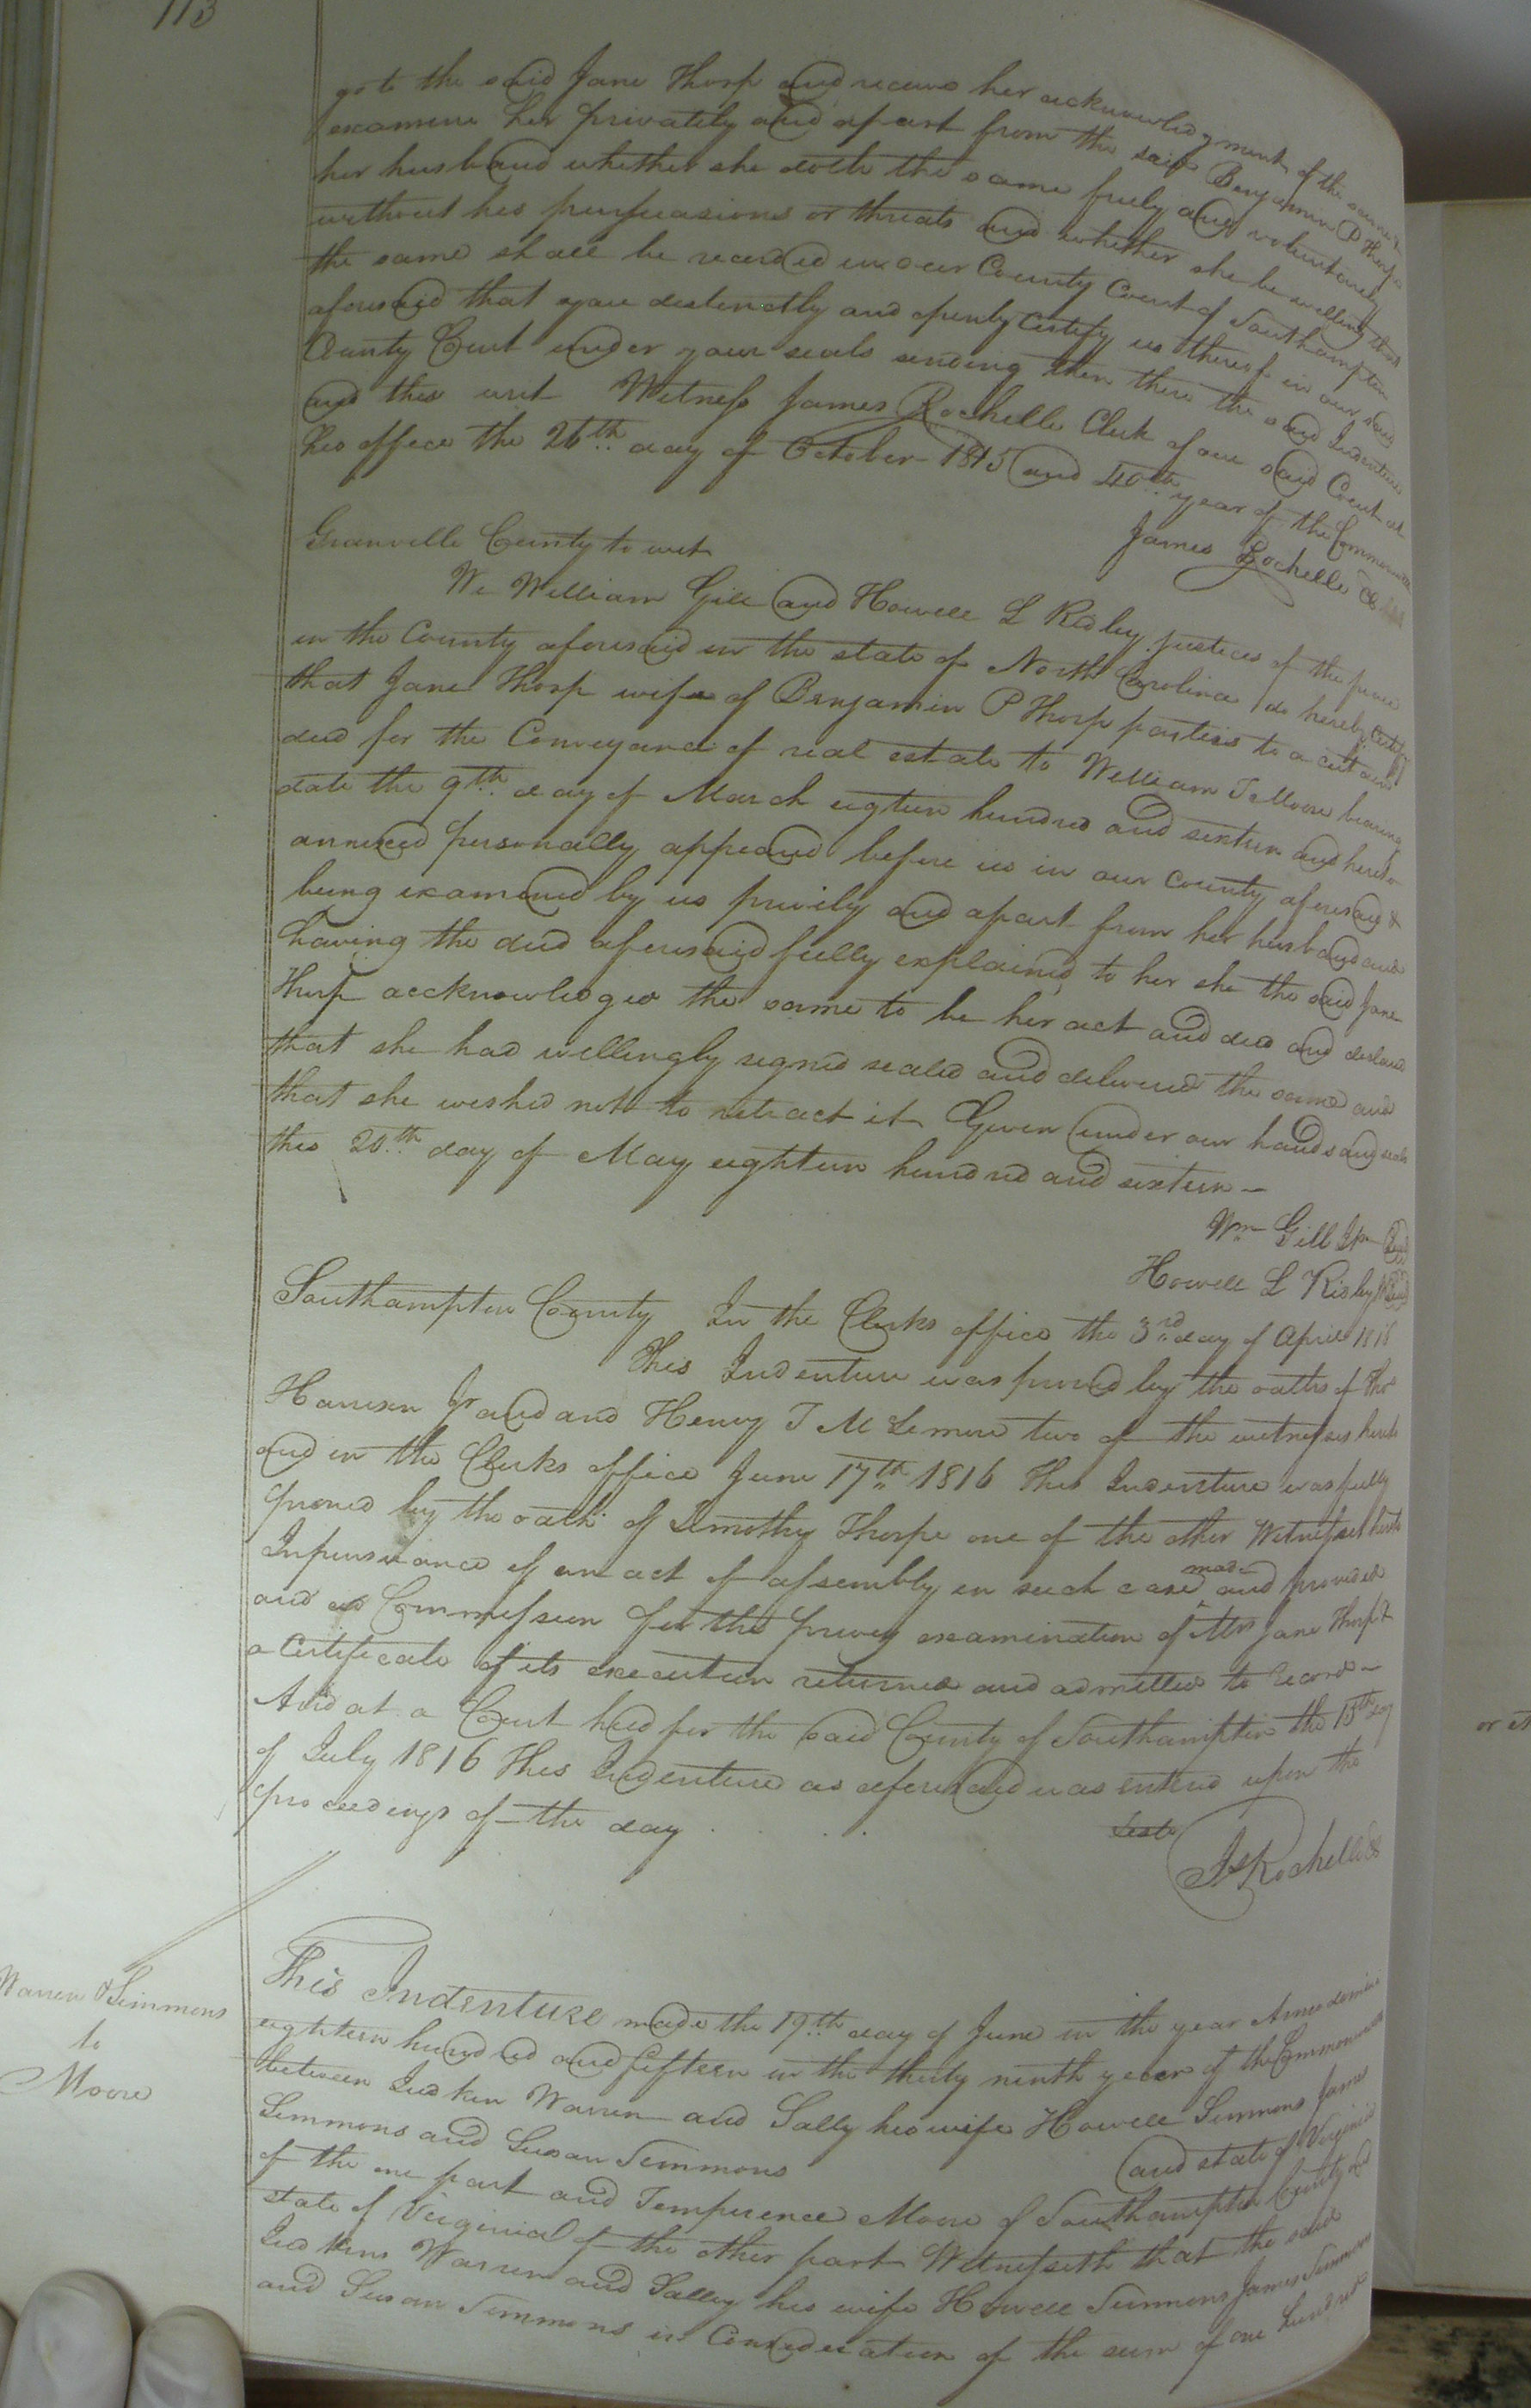 113
go to the said Jane Thorp and receive her acknowledgment of the same &
examine her privately and apart from the said Benjamin P Thorp
her husband whether she doth the same freely and voluntarily
without his persuasions or threats and whether she be willing that
the same shall be recorded in our County Court of Southampton
aforesaid that you distinctly and openly certify us thereof in our said
County Court under your seals sending then there the said Indenture
and this writ Witness James Rochelle Clerk of our said Court at
his office the 26th day of October 1815 and 40th year of the Commonwealth
James Rochelle
Granville County to wit
We William Gill and Howell L Ridley justices of the peace
in the County aforesaid in the state of North Carolina do hereby certify
that Jane Thorp wife of Benjamin P Thorp parties to a certain
deed for the Conveyance of real estate to William T Moore bearing
date the 9th day of March eigteen hundred and sixteen and hereto
annexed personally appeared before us in our county aforesaid &
being examined by us privily and apart from her husband and
having the deed aforesaid fully explained to her she the said Jane
Thorp acknowledges the same to be her act and deed and declared
that she had willingly signed sealed and delivered the same and
that she wished not to retract it Given under our hands and seals
this 20th day of May eighteen hundred and sixteen
Wm Gill Seal
Howell L Ridley Seal
Southampton County In the Clerks office the 3rd day of April 1816
This Indenture was proved by the oaths of Thos
Harrison Jr and and Henry T McLemore two of the witnesses hereto
and in the Clerks office June 17th 1816 This Indenture was fully
proved by the oath of Timothy Thorpe one of the other Witnesses hereto
Inpersuance of an act of assembly in such case made and provided
and a Commission for the privy examination of Mrs Jane Thorp &
a Certificate of its execution returned and admitted to record
And at a Court held for the said County of Southampton the 15th day
of July 1816 This Indenture as aforesaid was entered upon the
proceedings of the day
Teste
Js Rochelle
Warren & Simmons
to
Moore
This Indenture made the 19th day of June in the year Anno domini
eighteen hundred and fifteen in the thirty ninth year of the Commonwealth
between Judkin Warren and Sally his wife Howell Simmons James
Simmons and Susan Simmons
and state of Virginia
of the one part and Temperence Moore of Southampton County and
state of Virginia of the other part Witnesseth that the said
Judkins Warren and Salley his wife Howell Simmons James Simmons
and Susan Simmons in Consideration of the sum of one hundred